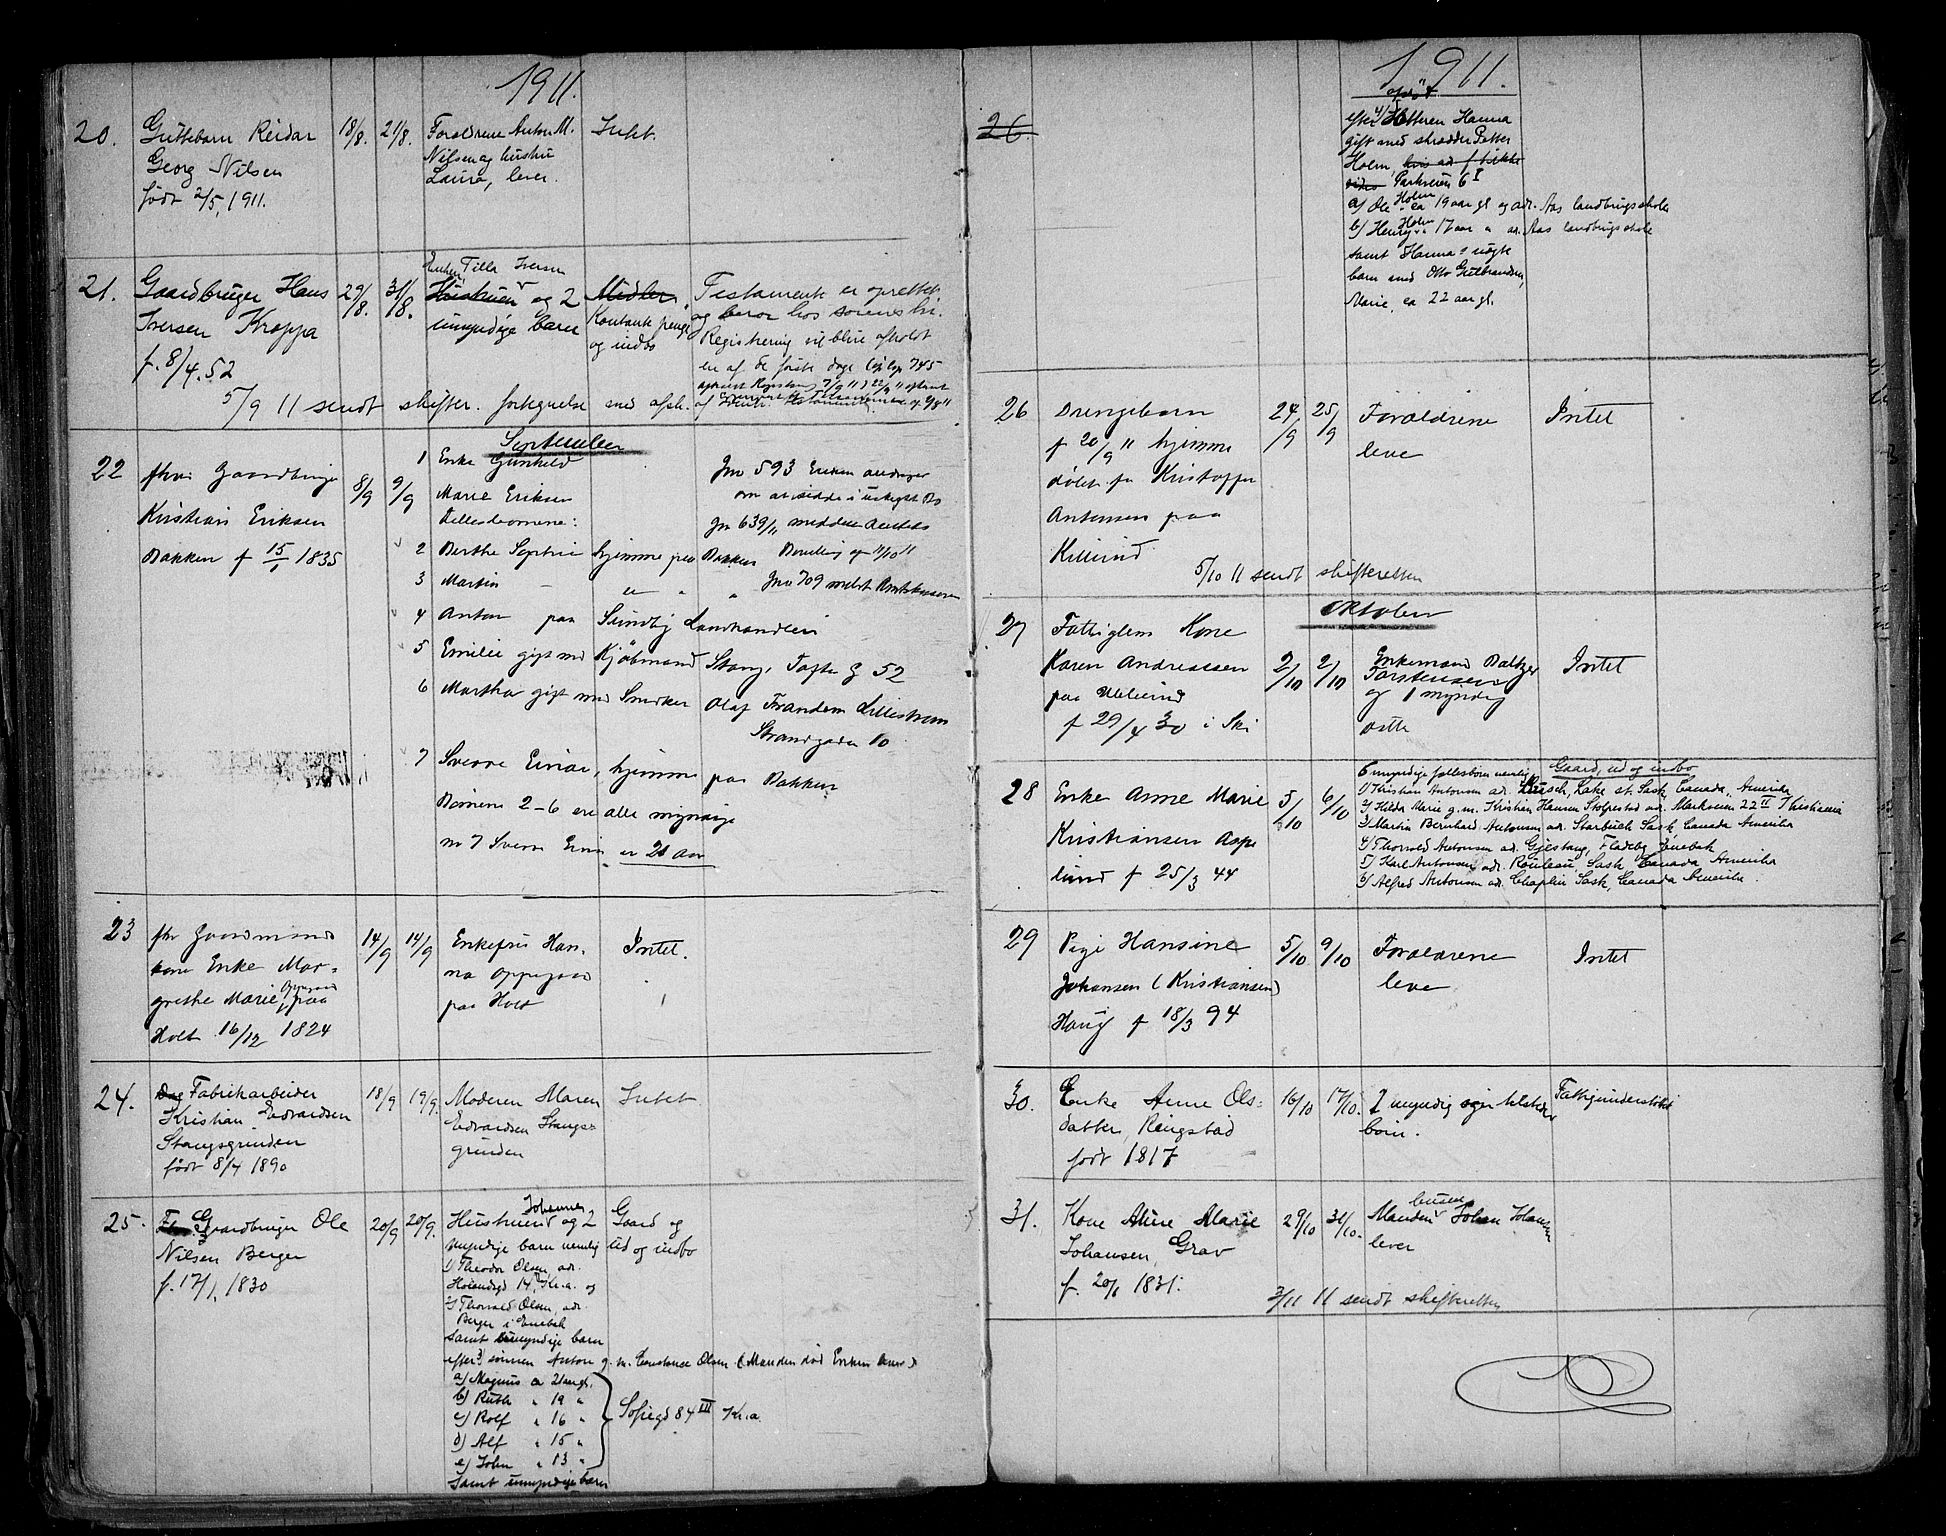 1911.
20. Guttebarn Reidar 18/8. 21/8. Forældrene Anton M. Intet.
Georg Nilsen Nilsen og hustru
født 2/5, 1911. Laura, lever.
Enken Tilla Iversen
21. Gaardbruger Hans 29/8. 31/8. Hustruen og 2 Midler. Testamente er oprettet
Iversen Kroppa umyndige barn Kontante penge og beror hos
f. 8/4. 52 og indbo Registrering vil blive afholdt
en af de første dage
5/9 11 sendt skifter. fortegnelse med afsk. af
September
22 fhv. Gaardbruger 8/9 9/9 1 Enke Gunhild Jno 593 Enken andrager
Kristian Eriksen Marie Eriksen om at sidde i uskiftet Bo
Bakken f 15/1 1835 Fellesbørnene: Jno 639/11 meddelt Amtets
2 Berthe Sophie hjemme paa Bakken Bevilling af 11/10 11
3 Martin Jno 709 meldt
4 Anton paa Sundby Landhandleri
5 Emilie gift md Kjøbmand Stang, Tofte g 52
6 Martha gift med Snedker Olaf Frandem Lillestrøm
Strandgaden 10
7 Sverre Einar, hjemme paa Bakken
Børnene 2-6 ere alle myndige
no 7 Sverre Einar er 21 Aar
23 fhv Gaardmand 14/9 14/9 Enkefru Han- Intet.
kone Enke Mar- na Oppegaard
grethe Marie paa paa Holt
Holt 16/12 1824
24. Fabrikarbeider 18/9 19/9. Moderen Maren Intet
Kristian Edvardsen Edvardsen Stangs-
Stangsgrunden grunden
født 8/4 1890
25. Gaardbruger Ole 20/9 20/9. Hustruen Johanne og 2 Gaard og
Nilsen Berger myndige barn nemlig ud og indbo
f. 17/1, 1830 1) Theodor Olsen, adr.
14, Kr.a. og
2) Thorvald Olsen, adr.
Berger i Enebak
samt umyndige barn
efter 3) sønnen Anton g. m. Constance Olsen (Manden død Enken
a) Magnus ca 21 aar gl.
b) Ruth " 19 "
c) Rolf " 16 " Sofiegd 84 III Kr.a.
d) Alf " 15 "
e) John " 13 "
Samt umyndige barn
1911.
26. efter 4) datteren Hanna
gift med skrædder Petter
Holm, hvis adr
Parkveien 6 I
a) Ole Holm ca 19 aar gl og adr. Aas landbrugsskole
b) Henry Holm 17 aar " adr. Aas landbrugsskole
samt Hanna's uægte
barn med Otto Gulbrandsen,
Marie, ca 22 aar gl.
26 Drengebarn 24/9 25/9 Forældrene Intet
f 20/9 11 hjemme leve
døbt fr Kristoffer
Antonsen paa
Killerud
5/10 11 sendt skifteretten
Oktober
27 Fattiglem Kone 2/10 2/10 Enkemand Baltzer Intet
Karen Andreassen Torstensen
paa og 1 myndig
f 29/4 30 i Ski datter
28 Enke Anne Marie 5/10 6/10 6 myndige fællesbørn nemlig Gaard, ud og indbo
Kristiansen Aspe- 1) Kristian Antonsen adr. Lake st. Sask Canada, Amerika
lund f 25/3 44 2) Hilda Marie g.m. Kristian Hansen Stolpestad adr. Markveien 22 II Kristiania
3) Martin Bernhard Antonsen adr. Starbuck Sask, Canada Amerika
4) Thorvald Antonsen adr. Gjestang, Fladeby Enebak
5) Karl Antonsen adr. Rouleau, Sask Canada Amerika
6) Alfred Antonsen adr. Chaplin Sask, Canada Amerika.
29 Pige Hansine 5/10 9/10 Forældrene Intet
Johansen (Kristiansen) leve
Haug f 18/3 94
30. Enke Anne Ols- 16/10 17/10. 2 myndig Fattigunderstøttet
datter, Ringstad børn.
født 1817
31. Kone Anne Marie 29/10 31/10. Manden Johan Johansen
Johansen, Grav lever
f. 20/6 1831.
3/11 11 sendt skifteretten